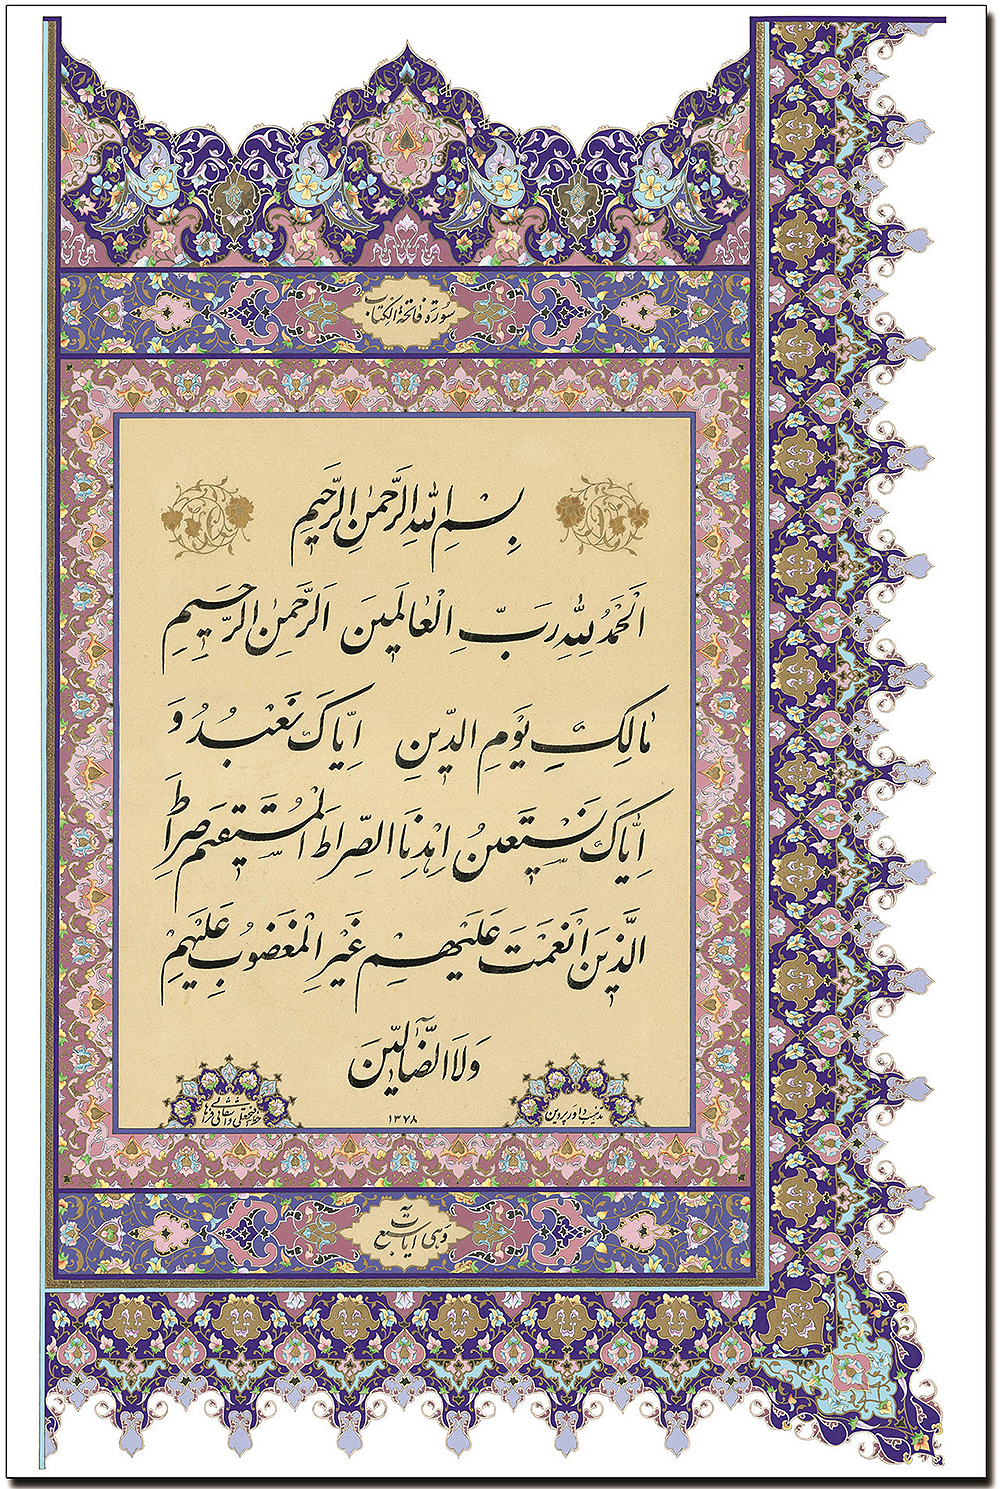 سُورَة فاتحة الکِتاب
بِسْمِ اللهِ الرَّحْمٰنِ الرَّحیمِ
اَلْحَمْدُ لِلّٰهِ رَبِّ الْعٰالَمینَ اَلرَّحْمٰنِ الرَّحیمِ
مٰالِکِ یَوْمِ الدّینِ اِیّٰاکَ نَعْبُدُ وَ
اِیّٰاکَ نَسْتَعینُ اِهْدِنَا الصِّرٰاطَ الْمُسْتَقیمَ صِرٰاطَ
الَّذینَ اَنْعَمْتَ عَلَیْهِمْ غَیْرِ الْمَغْضُوبِ عَلَیْهِمْ
وَلَا الضّٰالّینَ
تذهیب داور پروین
۱۳۷۸
وَهی سَبع آیات